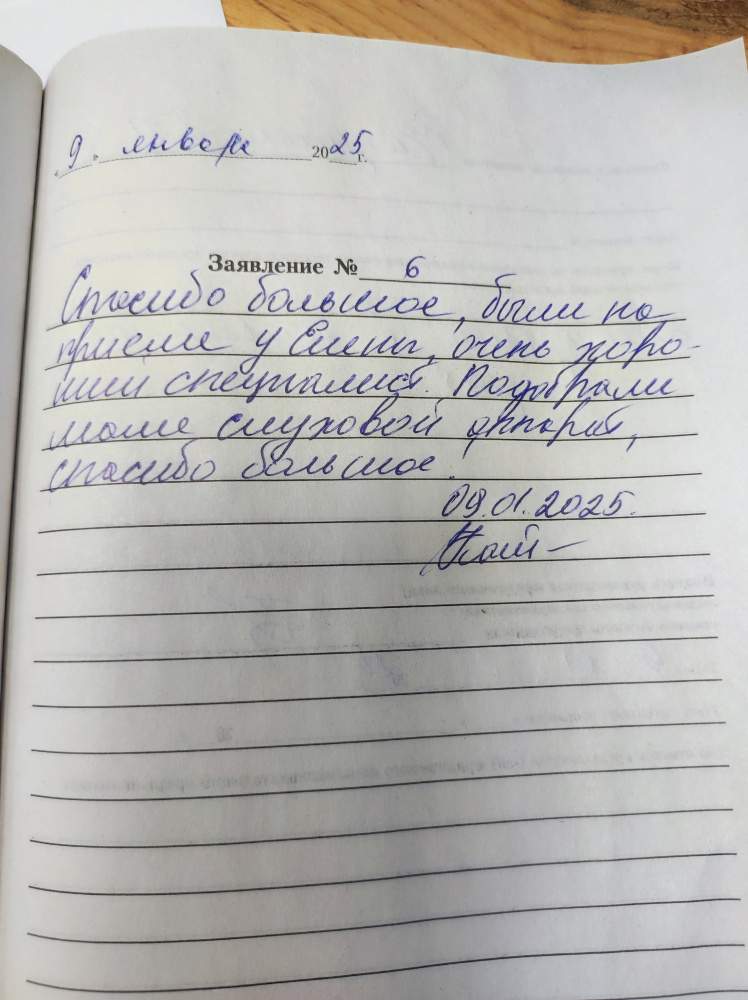 «9» января 2025 г.
Заявление № 6
Спасибо большое, были на
приеме у Елены, очень хоро-
ший специалист. Подобрали
маме слуховой аппарат,
спасибо большое.
09.01.2025.